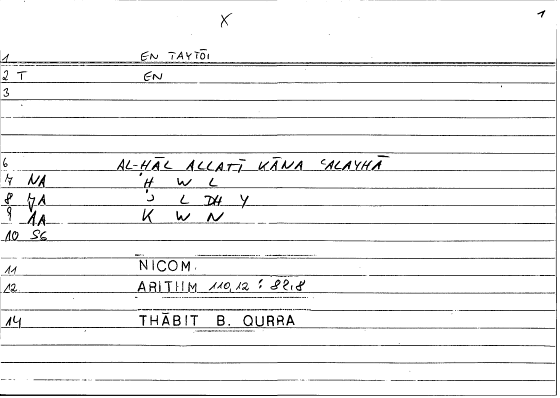 X 1
1 EN TAYTŌI
2 T EN
3
6 AL-ḤĀL ALLATĪ KĀNA ʿALAYHĀ
7 NA Ḥ W L
8 7A L DH Y
9 1A K W N
10 SG
11 NICOM.
12 ARITHM 110,12 : 82,8
14 THĀBIT B. QURRA